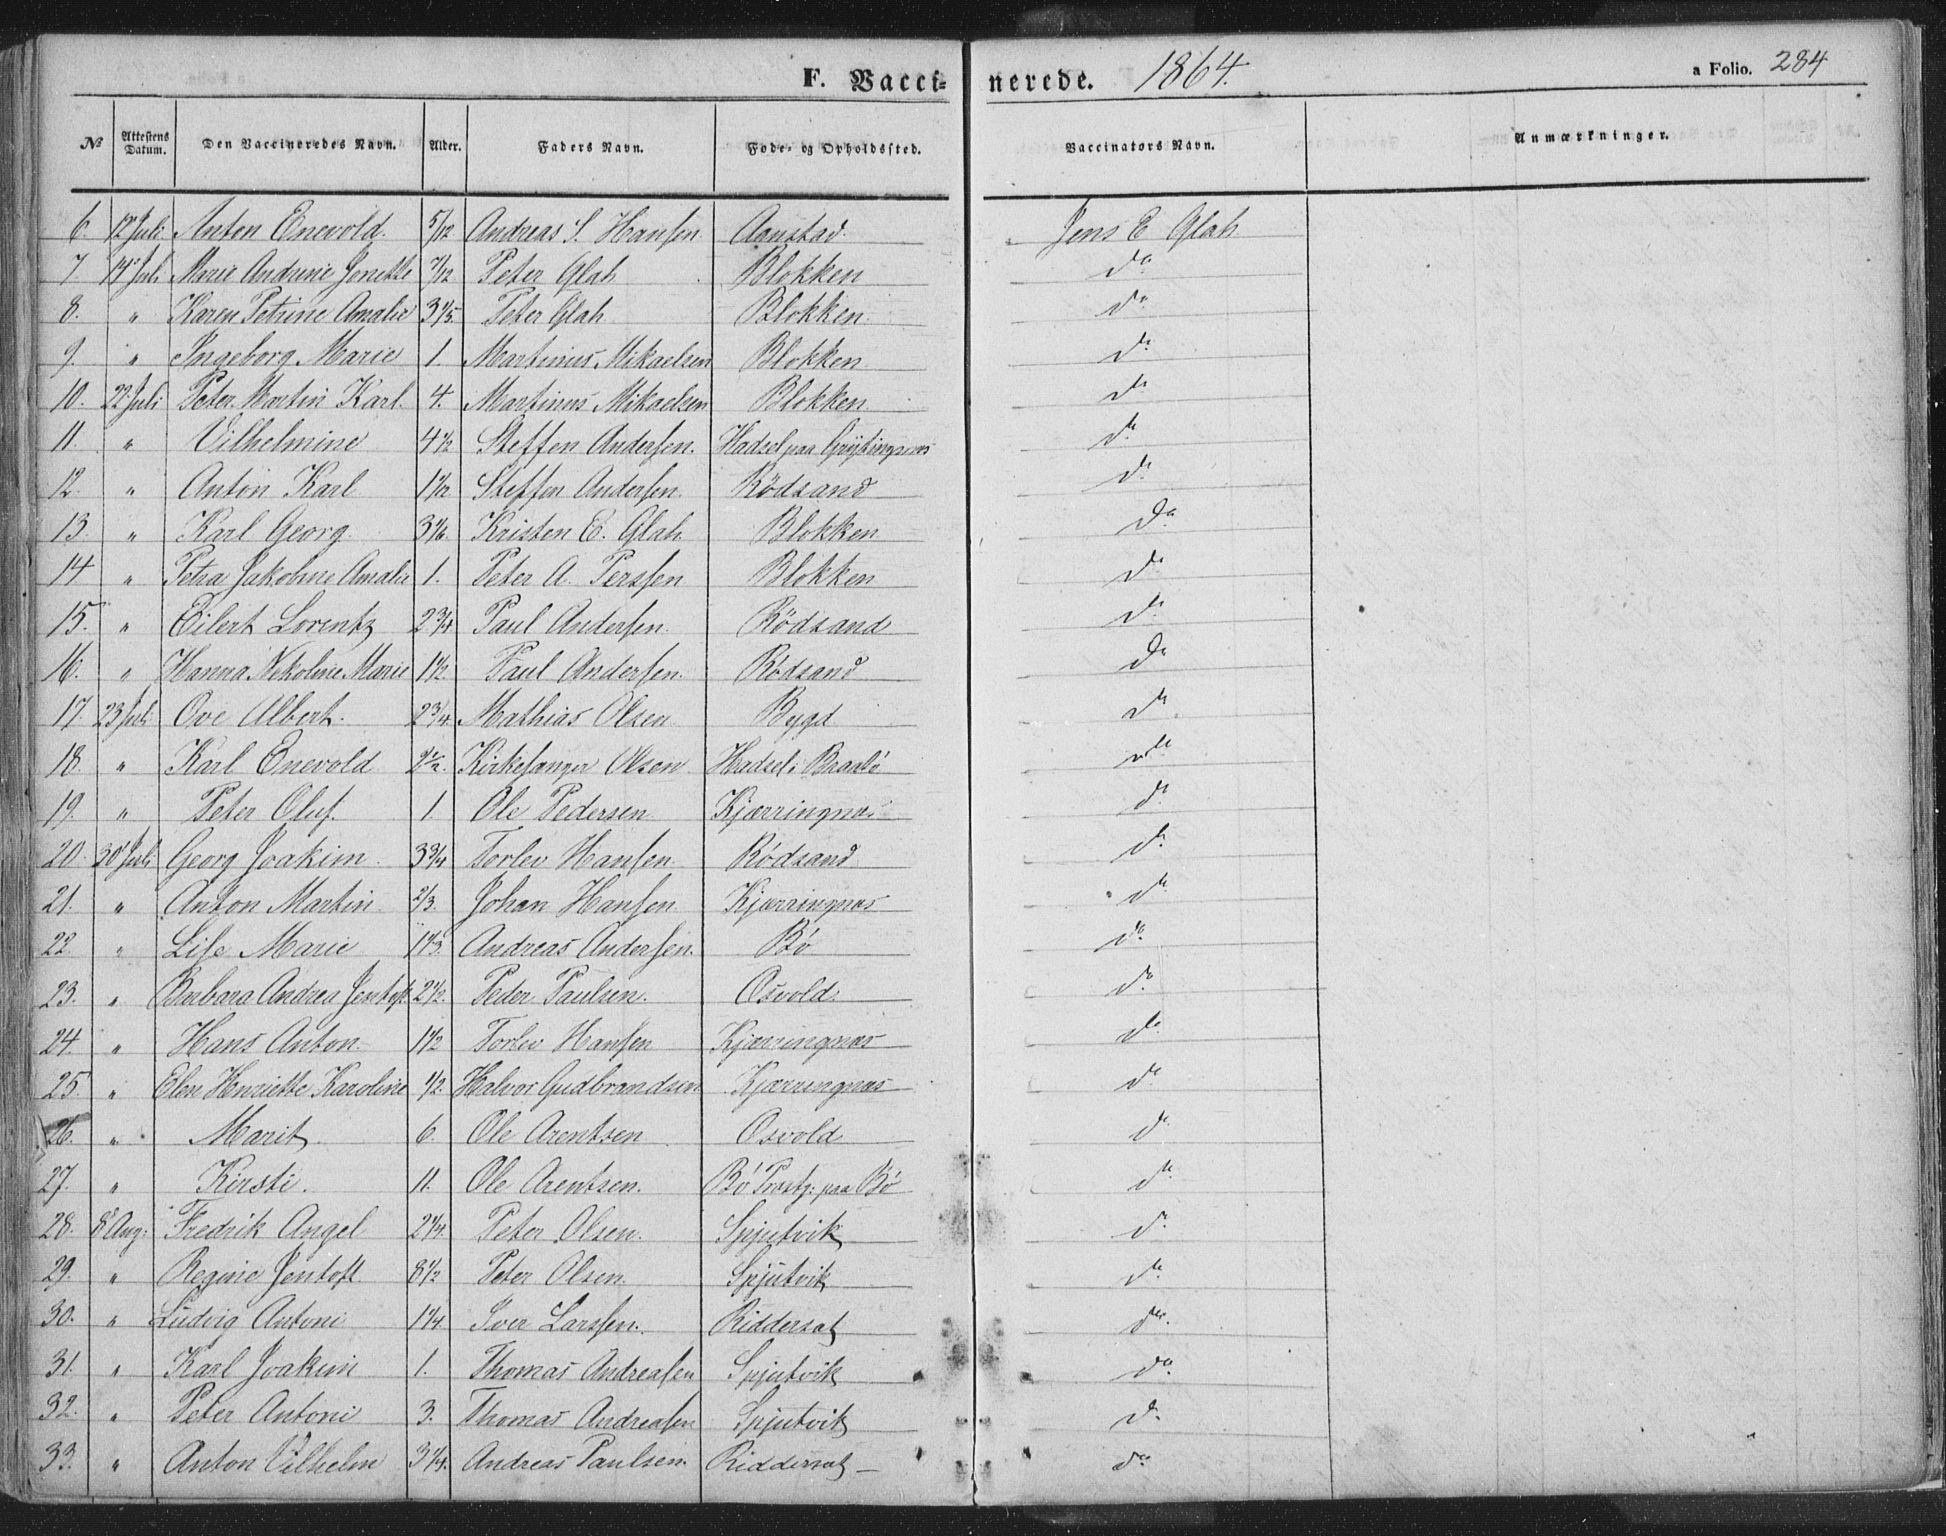 F. Vaccinerede. 1864. a Folio. 284
No Attestens Datum. Den Vaccineredes Navn. Alder. Faders Navn. Føde- og Opholdssted. Vaccinators Navn. Anmærkninger.
6. 12 Juli Anton Enevold. 5/12 Andreas S. Hansen Aanstad. Jens E Glah
7 14 Juli Marie Andrine Jonette 7/12 Peter Glah Blokken do
8. " Karen Petrine Amalie 3 1/5. Peter Glah Blokken. do
9. " Ingeborg Marie 1. Martinus Mikaelsen Blokken do
10. 22 Juli Peter Martin Karl. 4. Martinus Mikaelsen Blokken. do
11. " Vilhelmine 4 1/2 Steffen Andersen. Hadsel paa do
12. " Anton Karl 1 1/2 Steffen Andersen. Rödsand do
13. " Karl Georg. 3 1/6. Kristen E. Glah Blokken do
14 " Petra Jakobine Amalie 1. Peter A. Perssen Blokken do
15. " Eilert Lorentz 2 3/4 Paul Andersen. Rödsand do
16. " Hanna Nekoline Marie 1 1/2 Paul Andersen. Rödsand do
17. 23 Juli Ove Albert. 2 3/4 Mathias Olsen Bygd do
18. " Karl Enevold 2 1/2. Kirkesanger Olsen Hadsel: do
19. " Peter Oluf. 1. Ole Pedersen Kjærringnæs do
20. 30 Juli Georg Joakim 3 3/4 Torlev Hansen. Rödsand do
21. " Anton Martin 2/3. Johan Hansen Kjærringnæs do
22. " Lise Marie 1 1/3. Andreas Andersen. Bö do
23. " Barbara Andrea Jentoft 2 1/2. Peder Paulsen. Osvold. do
24. " Hans Anton 1 1/2 Torlev Hansen Kjærringnæs do
25 " Elen Henriette Karoline 1/2. Halvor Gudbrandsen Kjærringnæs do
26. " Marit. 6. Ole Arentsen Osvold do
27. " Kirsti. 11. Ole Arentsen. Bö Præstg: paa Bö do
28. 8 Aug: Fredrik Angel 2 1/4. Peter Olsen. Spjutvik do
29. " Regine Jentoft 8 1/2 Peter Olsen. Spjutvik do
30. " Ludvig Antoni 1 1/4 Iver Larssen. Riddersat do
31. " Karl Joakim 1. Thomas Andreasen Spjutvik do
32. " Peter Antoni 3. Thomas Andreasen Spjutvik do
33. " Anton Vilhelm 3 1/4. Andreas Paulsen. Riddersat do